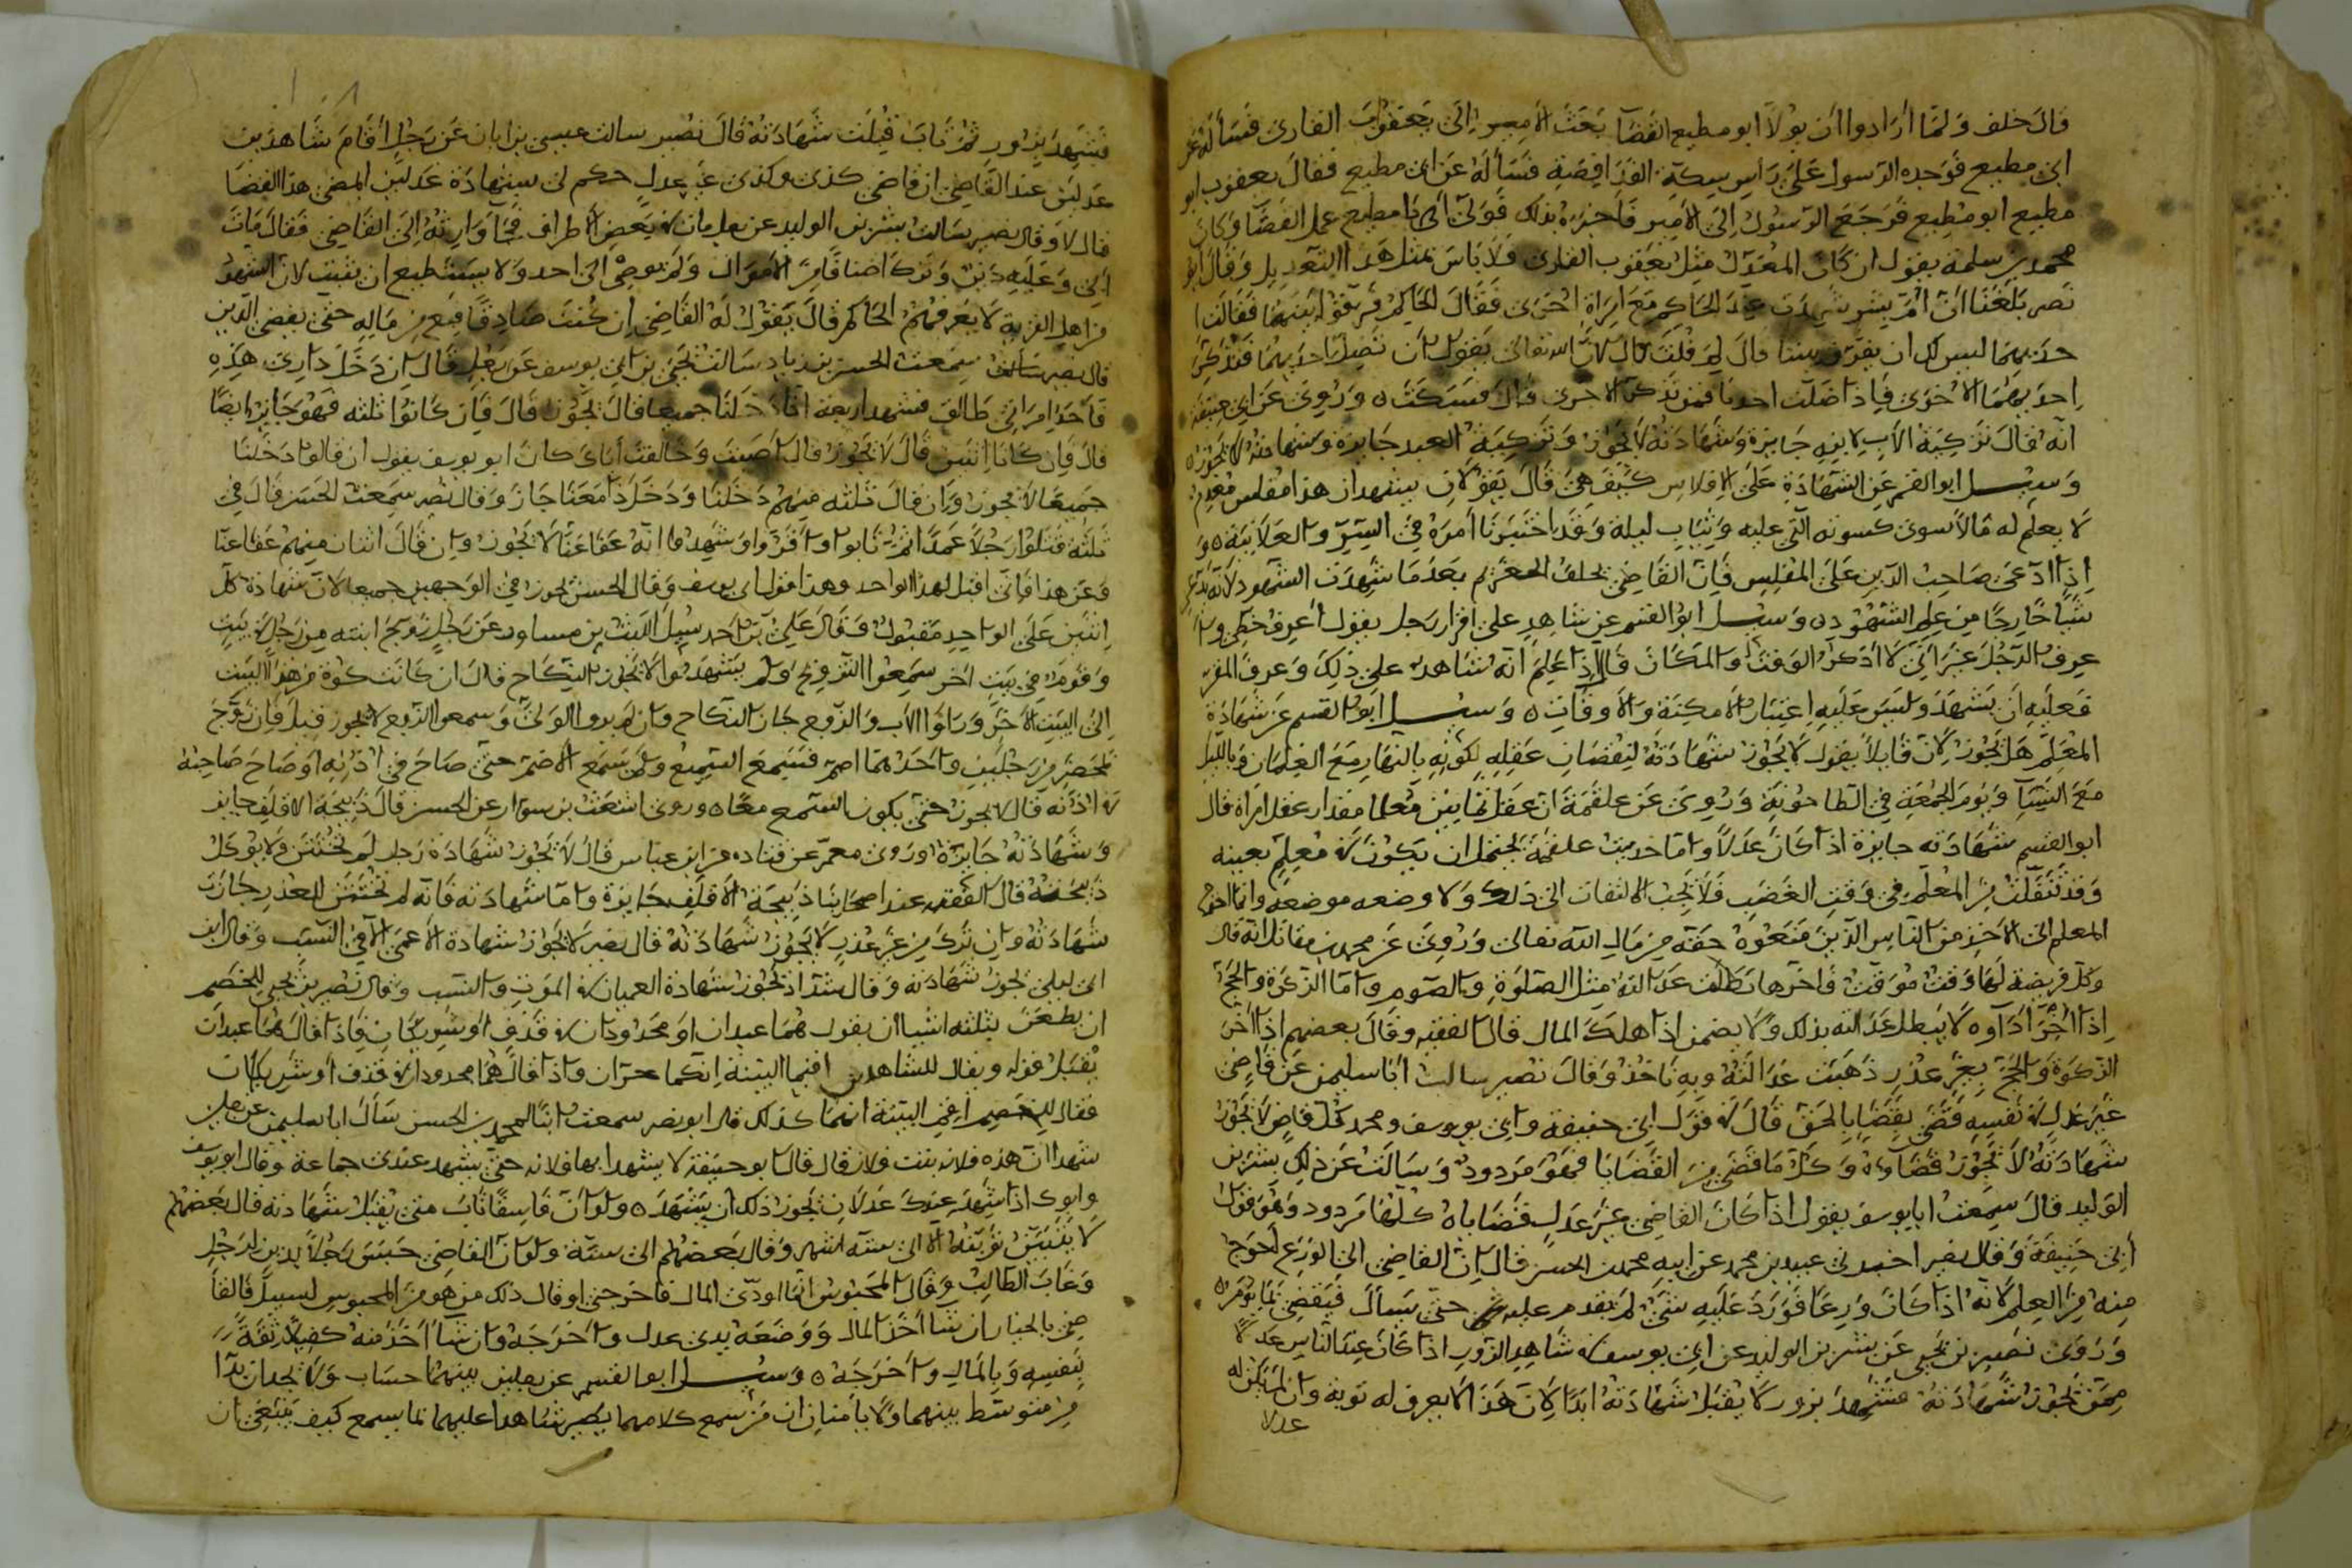 قال خلف ولما أرادوا أن يولا أبو مطيع القضا بعث الأمير إلى يعقوب القاري فسأله عن
ابي مطيع فوجده الرسول على رأس سكة فسأله عن ابي مطيع فقال يعقوب ابو
مطيع ابو مطيع فرجع الرسول إلى الأمير فأخبره بذلك فولى أبا مطيع عمل القضا وكان
محمد بن سلمة يقول ان كان المعدل مثل يعقوب القاري فلا بأس بمثل هذا التعديل وقال ابو
نصر بلغنا ان أم بشر شهدت عند الحاكم مع امراة اخرى فقال الحاكم فرقوا بينهما فقالت ا
حديهما ليس لك ان يفرق بيننا قال لم قلت قال لان الله تعالى يقول ان تضل احديهما فتذكر
احديهما الاخرى فاذا ضلت احدنا فمن تذكر الاخرى قال فسكت وروي عن ابي حنيفة
انه قال تزكية الأب لابنه جايزة وشهادته لا تجوز وتزكية العبد جايزة وشهادته لا تجوز
وسيل ابو القسم عن الشهادة على الافلاس كيف هي قال يقولان نشهد ان هذا مفلس معدم
لا يعلم له مالا سوى كسوته التي عليه وثياب ليله وقد اختبرنا أمره في السر والعلانية و
اذا ادعى صاحب الدين على المفلس فان القاضي يحلف الغريم بعد ما شهدت الشهود لانه يدعي
شيا خارجا من علم الشهود وسيل ابو القسم عن شاهد على اقرار رجل يقول أعرف خطي وا
عرف الرجل غير اني لا اذكر الوقت والمكان قال اذا علم انه شاهد على ذلك وعرف المقر به
فعليه ان يشهد وليس عليه اعتبار الأمكنة والأوقات وسيل ابو القسم عن شهادة
المعلم هل تجوز لان قايلا يقول لا يجوز شهادته لنقصان عقله لكونه بالنهار مع الغلمان وبالليل
مع النسا ويوم الجمعة في الطاحونة وروي عن علقمة ان عقل ثمانين معلما مقدار عقل امراة قال
ابو القسم شهادته جايزة اذا كان عدلا واما حديث علقمة يحتمل ان يكون في معلم بعينه
وقد من المعلم في وقت الغضب فلا يجب الالتفات الى ذلك ولا وضعه موضعه وانما احوج
المعلم الى الاخذ من الناس الذين منعوه حقه من مال الله تعالى وروي عن محمد بن مقاتل انه قال
وكل فريضة لها وقت موقت فاخرها بطلت عدالته مثل الصلوة والصوم واما الزكوة والحج
اذا اخر أداوه لا يبطل عدالته بذلك ولا يضمن اذا هلك المال قال الفقيه وقال بعضهم اذا اخر
الزكوة والحج بغير عذر ذهبت عدالته وبه ناخذ وقال نصير سالت ابا سليمن عن قاضي
غير عدل في نفسه فقضى بقضايا بالحق قال في قول ابي حنيفة وابي يوسف ومحمد كل قاض لا تجوز
شهادته لا تجوز قضاوه وكل ما قضى من القضايا فهو مردود وسالت عن ذلك بشر بن
الوليد قال سمعت ابا يوسف يقول اذا كان القاضي غير عدل فقضاياه كلها مردود وهو قول
أبي حنيفة وقال نصير اخبرني عبيد بن محمد عن ابيه محمد بن الحسن قال ان القاضي الى الورع احوج
منه من العلم لانه اذا كان ورعا فورد عليه شي لم يقدم عليه حتى يسأل فيقضي بما يؤمر
وروى نصير بن يحيى عن بشر بن الوليد عن ابي يوسف في شاهد الزور اذا كان عند الناس عدلا
ممن تجوز شهادته فشهد بزور لا يقبل شهادته ابدا لان هذا لا يعرف له توبة وان لم يكن له
عدلا
فشهد بزور ثم تاب قبلت شهادته قال نصير سالت عيسى بن ابان عن رجل أقام شاهدين
عدلين عند القاضي ان قاضي كذى وكذى غير عدل حكم لي بشهادة عدلين المضي هذا القضا
قال لا وقال نصير سالت بشر بن الوليد عن رجل مات في بعض الأطراف فجا وارثه إلى القاضي فقال مات
أبي وعليه دين وترك اصنافا من الأموال ولم يوصي الى احد ولا يستطيع ان يثبت لان الشهود
من اهل القرية لا يعرفهم الحاكم قال يقول له القاضي إن كنت صادقا فبع من ماله حتى يقضي الدين
قال نصير سمعت الحسن بن زياد سالت يحيى بن ابي يوسف عن رجل قال ان دخل داري هذه
فأحد امراتي طالق فشهد اربعة انا دخلنا جميعا قال تجوز قال فان كانوا ثلثه فهو جايز ايضا
قال فان كانا اثنين قال لا تجوز قال اصبت وخالفت أباك كان ابو يوسف يقول ان قالوا دخلنا
جميعا لا تجوز وان قال ثلثه منهم دخلنا ودخل ذا معنا جاز وقال نصير سمعت الحسن قال في
ثلثة قتلوا رجلا عمدا ثم تابوا واقروا وشهدوا انه عفا عنا لا تجوز وان قال اثنان منهم عفا عنا
وعن هذا فاني اقبل لهذا الواحد وهذا قول ابي يوسف وقال الحسن تجوز في الوجهين جميعا لان شهادة كل
اثنين على الواحد مقبول وقال علي بن احمد سيل الليث بن مساور عن رجل زوج ابنته من رجل في بيت
وقوم في بيت اخر سمعوا التزويج ولم يشهدوا الا تجوز النكاح قال ان كانت كوة من هذا البيت
الى البيت الاخر ورأوا الأب والزوج جاز النكاح وان لم يروا الولي وسمعوا الزوج لا يجوز قيل فان تزوج
بمحضر من رجلين واحدهما اصم فسمع السميع ولم يسمع الأصم حتى صاح في اذنه او صاح صاحبه
في اذنه قال لا يجوز حتى يكون السمع معا وروى اشعث بن سوار عن الحسن قال ذبيحة الاقلف جايز
وشهادته جايزة وروى معمر عن قتادة عن ابن عباس قال لا تجوز شهادة رجل لم يختتن ولا يوكل
ذبيحته قال الفقيه عند اصحابنا ذبيحة الأقلف جايزة واما شهادته فانه لم يختتن لعذر جازت
شهادته وان ترك من غير عذر لا يجوز شهادته قال نصير لا يجوز شهادة الأعمى الا في النسب وقال ابن
ابي ليلى تجوز شهادته وقال شداد تجوز شهادة العميان في الموت والنسب وقال نصير بن يحيى للخصم
ان يطعن بثلثه اشيا ان يقول هما عبدان او محدودان في قذف او شريكان فاذا قال هما عبدان
يقبل قوله ويقال للشاهدين اقيما البينة انكما حران واذا قال هما محدودان في قذف او شريكان
فقال للخصم اقم البينة انهما كذلك قال ابو نصير سمعت ابنا لمحمد بن الحسن سأل ابا سليمن عن رجلين
شهدا ان هذه فلانه بنت فلان قال قال ابو حنيفة لا يشهدا بها فلانه حتى يشهد عندي جماعة وقال ابو يوسف
وابوك اذا شهد عندك عدلان تجوز ذلك ان يشهد ولو ان فاسقا تاب متى يقبل شهادته قال بعضهم
لا يتبين توبته الا الى ستة اشهر وقال بعضهم الى سنة ولو ان القاضي حبس رجلا بدين لرجل
وغاب الطالب وقال المحبوس انا اودي المال فاخرجني او قال ذلك من هو من المحبوس لسبيل فالقا
ضي بالخيار ان شا أخذ المال ووضعه يدي عدل واخرجه وان شا أخذ منه كفيلا ثقة
بنفسه وبالمال واخرجه وسيل ابو القسم عن رجلين بينهما حساب ولا يجدان بدا
من متوسط بينهما ولا يامنان ان من سمع كلامهما يصير شاهدا عليهما بما يسمع كيف ينبغي ان